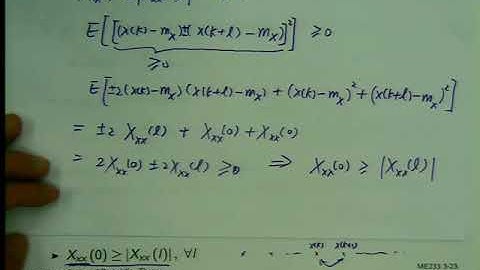 E[[(x(k)−m_x) ± (x(k+l)−m_x)]²] ≥ 0
≥0
E[±2(x(k)−m_x)(x(k+l)−m_x) + (x(k)−m_x)² + (x(k+l)−m_x)²]
= ±2 X_xx(l) + X_xx(0) + X_xx(0)
= 2X_xx(0) ± 2X_xx(l) ≥ 0 ⇒ X_xx(0) ≥ |X_xx(l)|
x(k) x(k+l)
▸ X_xx(0) ≥ |X_xx(l)|, ∀l
ME233 3-23